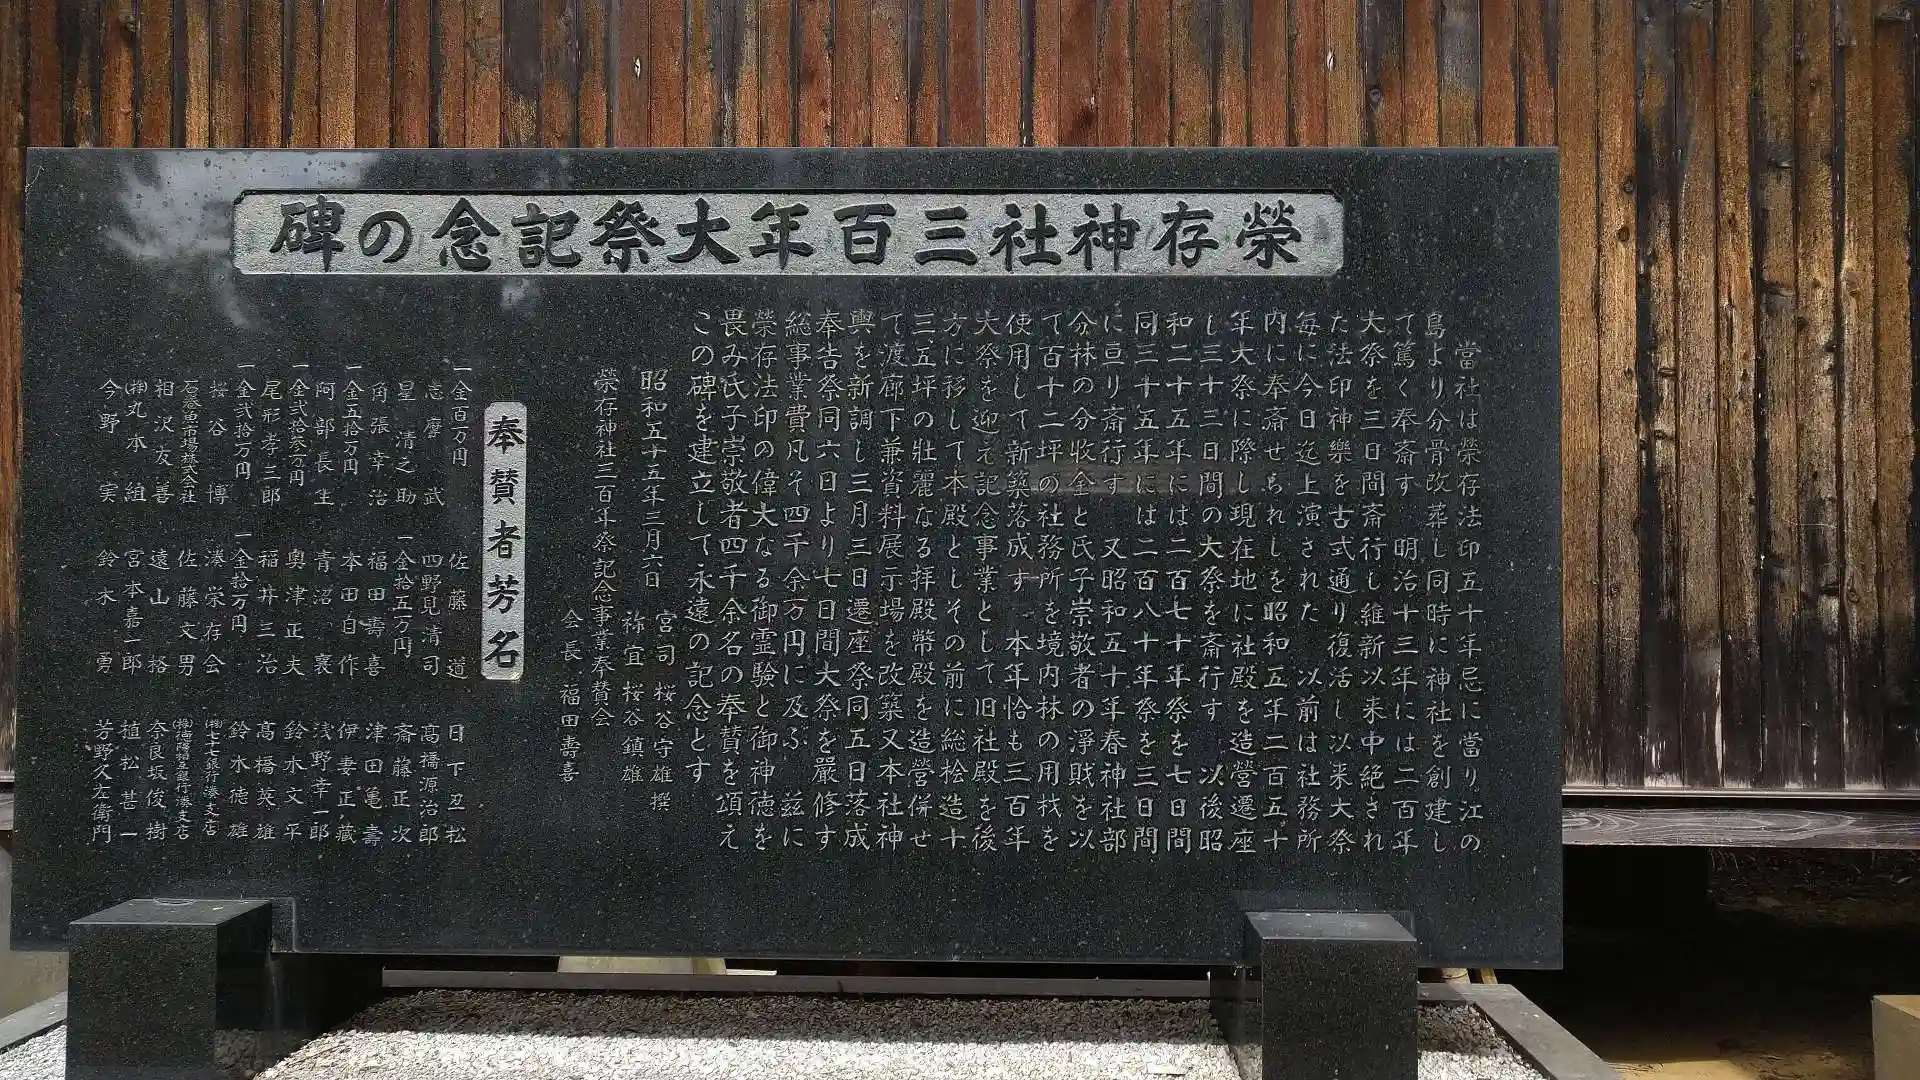 榮存神社三百年大祭記念の碑
當社は榮存法印五十年忌に當り江の
島より分骨改葬し同時に神社を創建し
て篤く奉斎す 明治十三年には二百年
大祭を三日間斎行し維新以来中絶され
た法印神樂を古式通り復活し以来大祭
毎に今日迄上演された 以前は社務所
内に奉斎せられしを昭和五年二百五十
年大祭に際し現在地に社殿を造営遷座
し三十三日間の大祭を斎行す 以後昭
和二十五年には二百七十年祭を七日間
同三十五年には二百八十年祭を三日間
に亘り斎行す 又昭和五十年春神社部
分林の分収金と氏子崇敬者の淨財を以
て百十二坪の社務所を境内林の用材を
使用して新築落成す 本年恰も三百年
大祭を迎え記念事業として旧社殿を後
方に移して本殿としその前に総桧造十
三、五坪の壯麗なる拝殿幣殿を造營併せ
て渡廊下兼資料展示場を改築又本社神
輿を新調し三月三日遷座祭同五日落成
奉告祭同六日より七日間大祭を嚴修す
総事業費凡そ四千余万円に及ぶ 茲に
榮存法印の偉大なる御霊験と御神徳を
畏み氏子崇敬者四千余名の奉賛を頌え
この碑を建立して永遠の記念とす
昭和五十五年三月六日
宮司 桜谷守雄 撰
祢宜 桜谷鎮雄
榮存神社三百年祭記念事業奉賛会
会長 福田壽喜
奉賛者芳名
一金百万円
志摩武
星清之助
角張幸治
一金五拾万円
阿部長生
一金弐拾参万円
尾形孝三郎
一金弐拾万円
桜谷博
石巻魚市場株式会社
相沢友善
(株)丸本組
今野実
佐藤道
四野見清司
一金拾五万円
福田壽喜
本田自作
青沼襄
奥津正夫
稲井三治
一金拾万円
湊栄存会
佐藤文男
遠山格
宮本嘉一郎
鈴木勇
日下丑松
髙橋源治郎
斎藤正次
津田亀壽
伊妻正藏
浅野幸一郎
鈴木文平
髙橋英雄
鈴木德雄
(株)七十七銀行湊支店
(株)徳陽相互銀行湊支店
奈良坂俊樹
植松甚一
芳野久左衛門